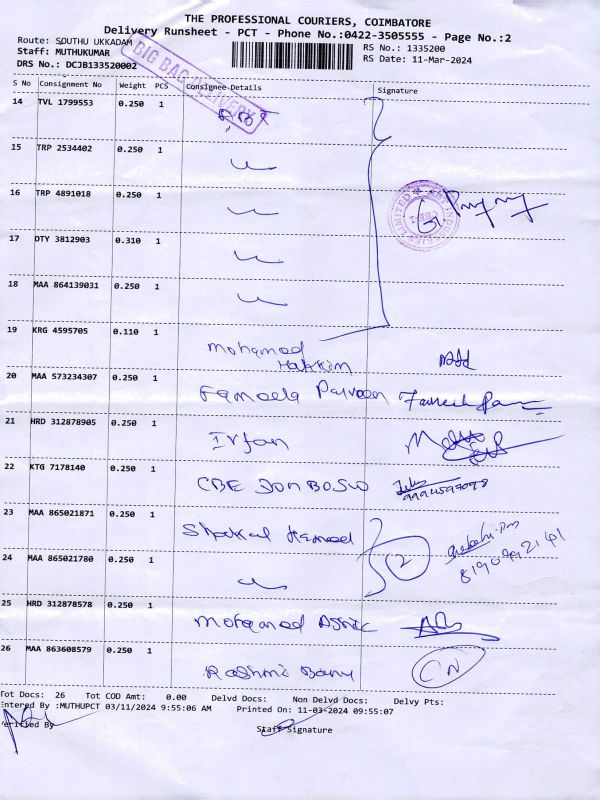 THE PROFESSIONAL COURIERS, COIMBATORE
Delivery Runsheet - PCT - Phone No.:0422-3505555 - Page No.:2
Route: SOUTHU UKKADAM
RS No.: 1335200
Staff: MUTHUKUMAR
RS Date: 11-Mar-2024
DRS No.: DCJB133520002
BIG BAG DELIVERY
S No Consignment No Weight PCS Consignee Details Signature
14 TVL 1799553 0.250 1
15 TRP 2534402 0.250 1
16 TRP 4891018 0.250 1
17 OTY 3812903 0.310 1
18 MAA 864139031 0.250 1
19 KRG 4595705 0.110 1 Mohamed Hakkim
20 MAA 573234307 0.250 1 Fameela Parveen
21 HRD 312878905 0.250 1 Irfan
22 KTG 7178140 0.250 1 CBE Don Bosco
23 MAA 865021871 0.250 1 Hameed
2
24 MAA 865021780 0.250 1
25 HRD 312878578 0.250 1 Mohamed
26 MAA 863608579 0.250 1 Rashmi Banu CN
Tot Docs: 26 Tot COD Amt: 0.00 Delvd Docs: Non Delvd Docs: Delvy Pts:
Entered By :MUTHUPCT 03/11/2024 9:55:06 AM Printed On: 11-03-2024 09:55:07
Verified By Staff Signature